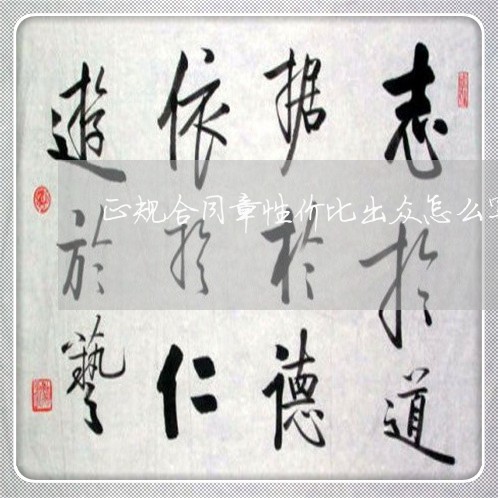 志於道
据於德
依於仁
遊於藝
正规合同章性价比出众怎么